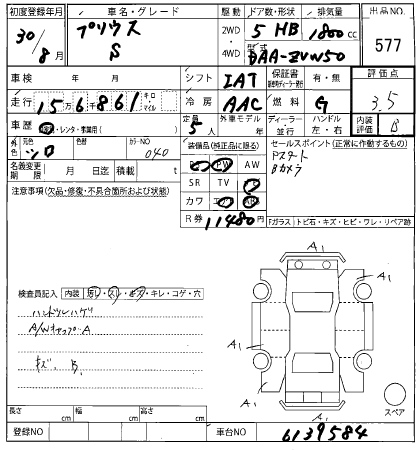 初度登録年月 車名・グレード 駆動 ドア数・形状 排気量 出品NO.
30年 プリウス 2WD 5 HB 1800cc
8月 S 4WD 型式 DAA-ZVW50 577
車検 年 月 シフト IAT 保証書 有・無 評価点
走行 15万6千861 キロ・マイル 冷房 AAC 燃料 G 3.5
車歴 自家・レンタ・事業用( ) 定員 5人 外車モデル 年 ディーラー・並行 ハンドル 左・右 内装評価 B
外装色 元色 シロ 色替 カラーNO 040 装備品(純正品に限る) セールスポイント(正常に作動するもの)
名義変更期限 月 日迄 積載 t PS PW AW Pスタート
注意事項(欠品・修復・不具合箇所および状態) SR TV ナビ Bカメラ
カワ エアB ABS
R券 11480円
「ガラス」トビ石・キズ・ヒビ・ワレ・リペア跡
A1
検査員記入 内装 汚レ・スレ・キズ・キレ・コゲ・穴 A1
ハンドルハゲ
A/Wキャップ・A
A1 A1
キズ、B
A1
A1
スペア
長さ cm 幅 cm 高さ cm
登録NO 車台NO 6139584